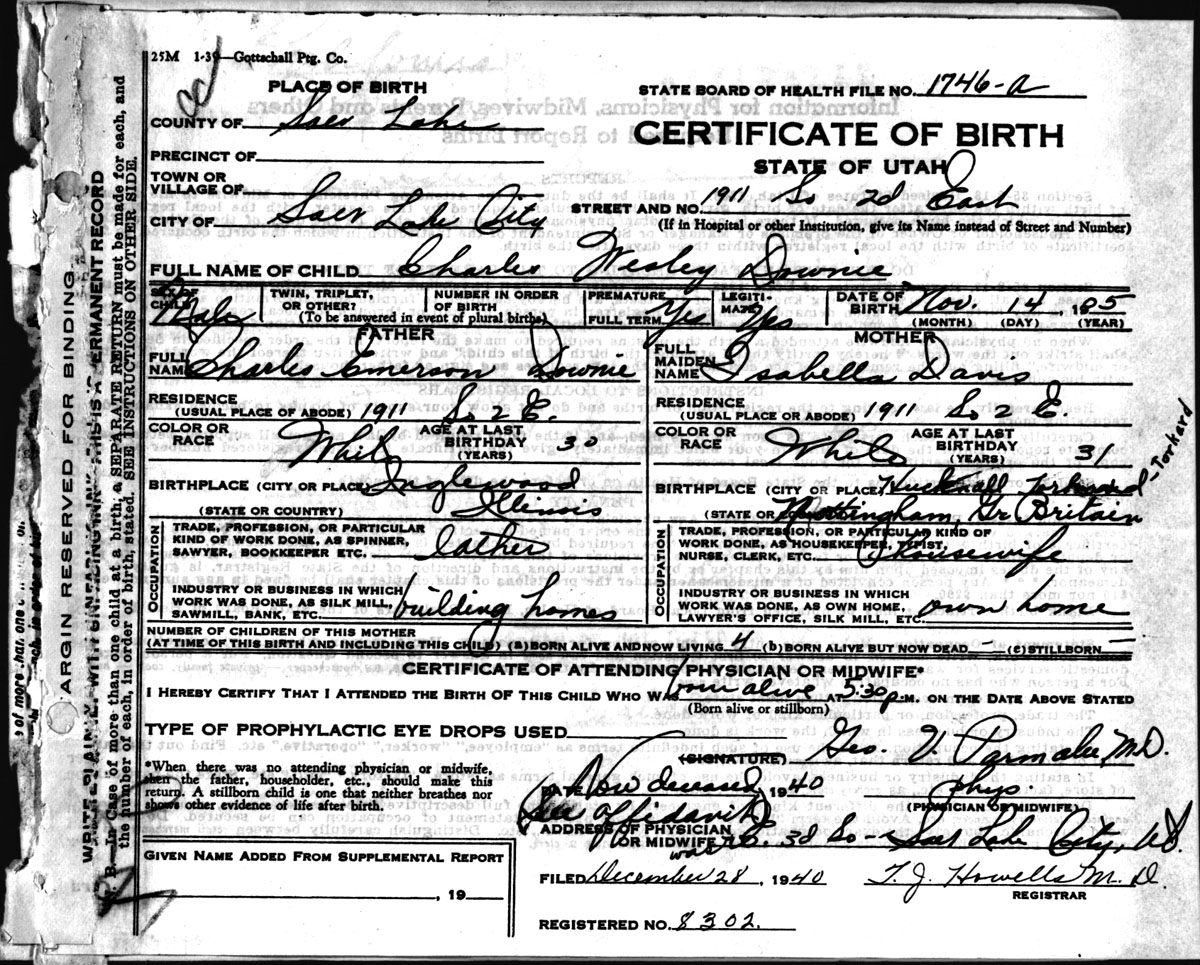 25M 1-39—Gottschall Ptg. Co.
PLACE OF BIRTH
STATE BOARD OF HEALTH FILE NO. 1746-a
COUNTY OF Salt Lake
CERTIFICATE OF BIRTH
PRECINCT OF
STATE OF UTAH
TOWN OR VILLAGE OF
CITY OF Salt Lake City
STREET AND NO. 1911 So 2d East
(If in Hospital or other Institution, give its Name instead of Street and Number)
FULL NAME OF CHILD Charles Wesley Downie
SEX OF CHILD Male
TWIN, TRIPLET, OR OTHER?
NUMBER IN ORDER OF BIRTH
(To be answered in event of plural births)
PREMATURE
FULL TERM Yes
LEGITIMATE Yes
DATE OF BIRTH Nov. 14, 1 85
(MONTH) (DAY) (YEAR)
FATHER
FULL NAME Charles Emerson Downie
RESIDENCE
(USUAL PLACE OF ABODE) 1911 So 2 E.
COLOR OR RACE White
AGE AT LAST BIRTHDAY (YEARS) 30
BIRTHPLACE (CITY OR PLACE) Inglewood
(STATE OR COUNTRY) Illinois
OCCUPATION
TRADE, PROFESSION, OR PARTICULAR KIND OF WORK DONE, AS SPINNER, SAWYER, BOOKKEEPER ETC. lather
INDUSTRY OR BUSINESS IN WHICH WORK WAS DONE, AS SILK MILL, SAWMILL, BANK, ETC. building homes
MOTHER
FULL MAIDEN NAME Isabella Davis
RESIDENCE
(USUAL PLACE OR ABODE) 1911 So 2 E.
COLOR OR RACE White
AGE AT LAST BIRTHDAY (YEARS) 31
BIRTHPLACE (CITY OR PLACE) Hucknall Torkard
-Torkard
(STATE OR Nottingham, Gr. Britain
OCCUPATION
TRADE, PROFESSION, OR PARTICULAR KIND OF WORK DONE, AS HOUSEKEEPER, TYPIST, NURSE, CLERK, ETC. Housewife
INDUSTRY OR BUSINESS IN WHICH WORK WAS DONE, AS OWN HOME, LAWYER'S OFFICE, SILK MILL, ETC. own home
NUMBER OF CHILDREN OF THIS MOTHER
(AT TIME OF THIS BIRTH AND INCLUDING THIS CHILD) (a) BORN ALIVE AND NOW LIVING 4 (b) BORN ALIVE BUT NOW DEAD – (c) STILLBORN –
CERTIFICATE OF ATTENDING PHYSICIAN OR MIDWIFE*
I HEREBY CERTIFY THAT I ATTENDED THE BIRTH OF THIS CHILD WHO WAS born alive AT 5:30 p.M. ON THE DATE ABOVE STATED
(Born alive or stillborn)
TYPE OF PROPHYLACTIC EYE DROPS USED
*When there was no attending physician or midwife, then the father, householder, etc., should make this return. A stillborn child is one that neither breathes nor shows other evidence of life after birth.
Geo. V. Parmalee M.D.
(SIGNATURE)
DATE Now deceased, 1940 phys.
(PHYSICIAN OR MIDWIFE)
See affidavit
ADDRESS OF PHYSICIAN OR MIDWIFE was E. 3d So - Salt Lake City, Ut.
GIVEN NAME ADDED FROM SUPPLEMENTAL REPORT
, 19
FILED December 28, 1940 T. J. Howells M.D.
REGISTRAR
REGISTERED NO. 8302.
MARGIN RESERVED FOR BINDING
WRITE PLAINLY, WITH UNFADING INK—THIS IS A PERMANENT RECORD
N. B.—In Case of more than one child at a birth, a SEPARATE RETURN must be made for each, and
the number of each, in order of birth, stated. SEE INSTRUCTIONS ON OTHER SIDE.